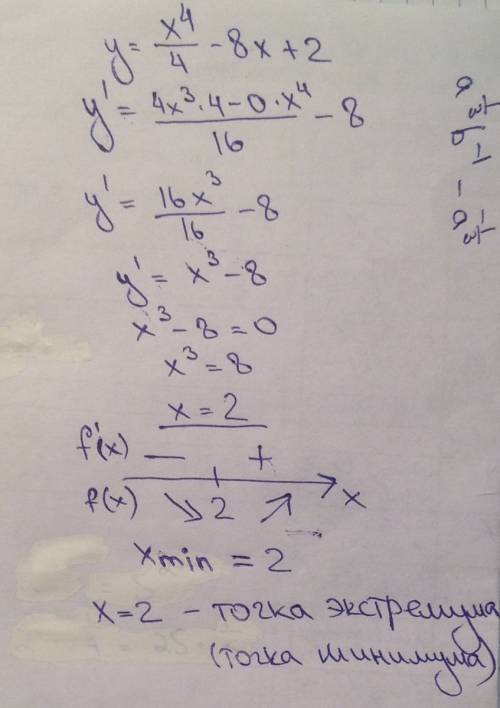 y = x⁴/4 - 8x + 2
y' = (4x³·4 - 0·x⁴)/16 - 8
y' = 16x³/16 - 8
y' = x³ - 8
x³ - 8 = 0
x³ = 8
x = 2
f'(x) — +
f(x) ↘ 2 ↗ x
xmin = 2
x=2 - точка экстремума
(точка минимума)
a^(1/3) b^(-1) - a^(-1/3)